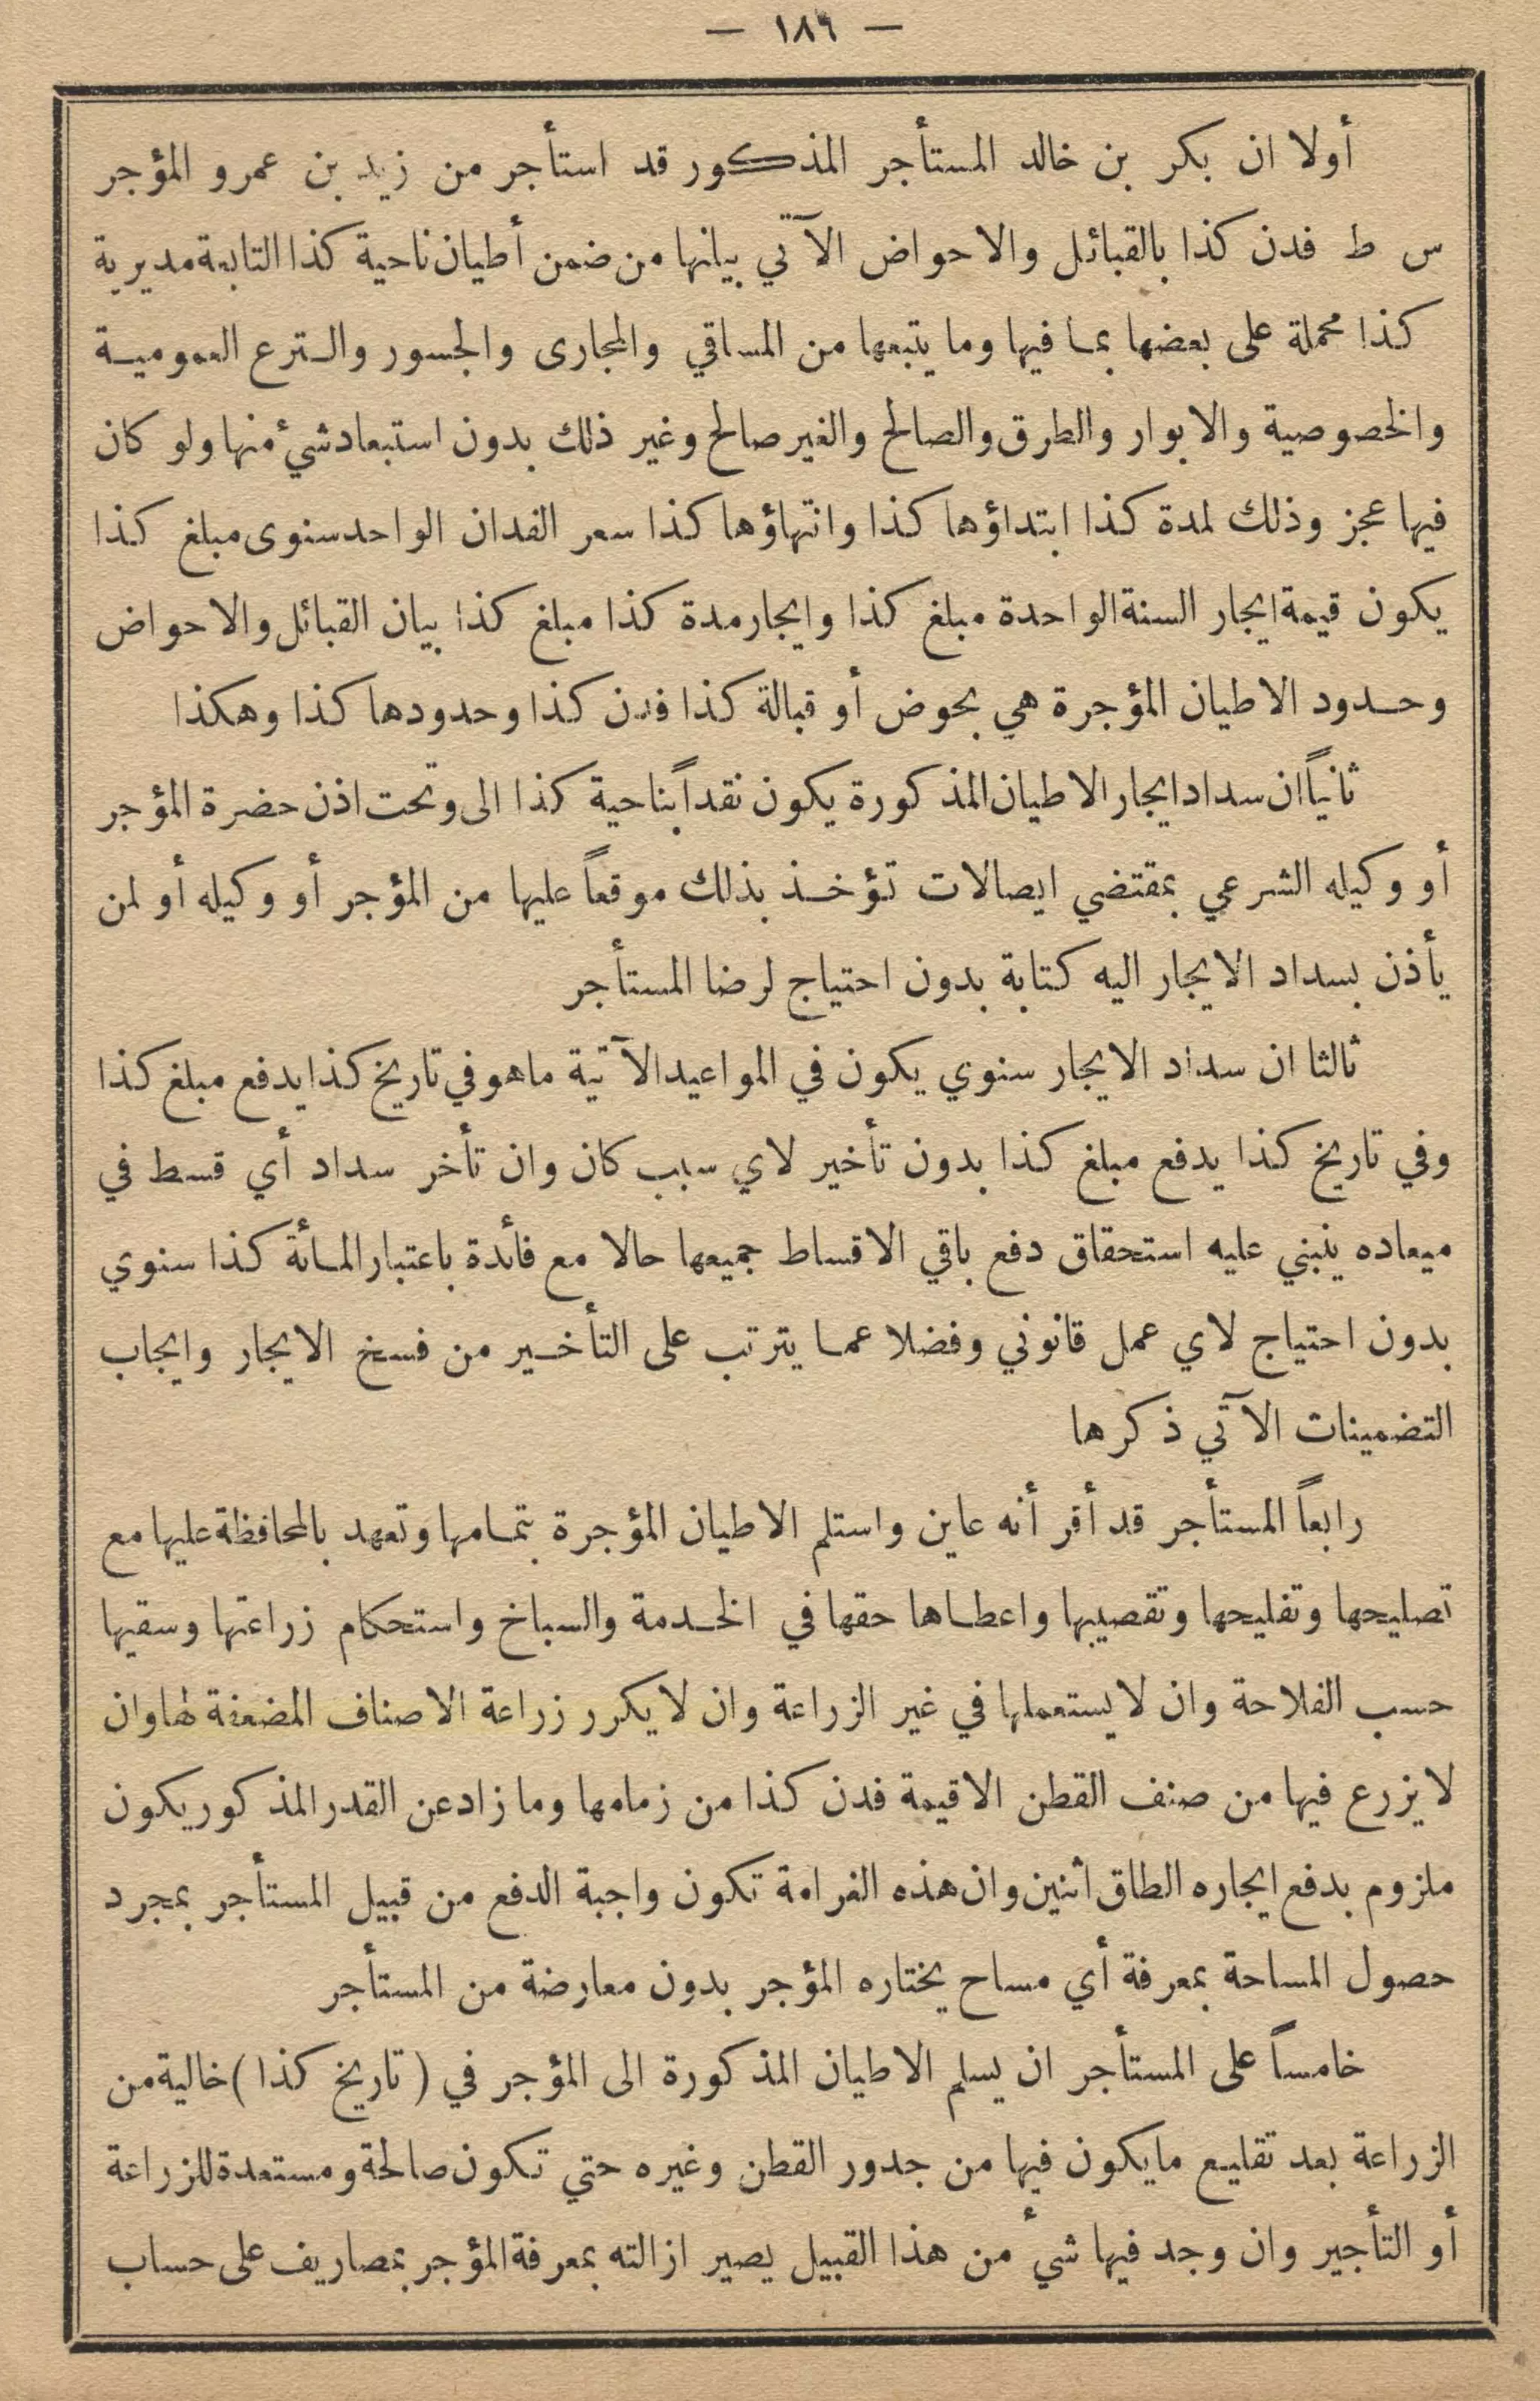 — ١٨٦ —
أولا ان بكر بن خالد المستأجر المذكور قد استأجر من زيد بن عمرو المؤجر
س ط فدن كذا بالقبائل والاحواض الآتي بيانها من ضمن أطيان ناحية كذا التابعة مديرية
كذا محملة على بعضها بما فيها وما يتبعها من المساقي والمجارى والجسور والترع العمومية
والخصوصية والابوار والطرق والصالح والغير صالح وغير ذلك بدون استبعاد شيء منها ولو كان
فيها عجز وذلك لمدة كذا ابتداؤها كذا وانتهاؤها كذا سعر الفدان الواحد سنوى مبلغ كذا
يكون قيمة ايجار السنة الواحدة مبلغ كذا وايجار مدة كذا مبلغ كذا بيان القبائل والاحواض
وحدود الاطيان المؤجرة هي بحوض أو قبالة كذا فدن كذا وحدودها كذا وهكذا
ثانياً ان سداد ايجار الاطيان المذكورة يكون نقداً بناحية كذا الى وتحت اذن حضرة المؤجر
أو وكيله الشرعي بمقتضي ايصالات تؤخذ بذلك موقعاً عليها من المؤجر أو وكيله أو لمن
يأذن بسداد الايجار اليه كتابة بدون احتياج لرضا المستأجر
ثالثا ان سداد الايجار سنوي يكون في المواعيد الآتية ماهو في تاريخ كذا يدفع مبلغ كذا
وفي تاريخ كذا يدفع مبلغ كذا بدون تأخير لاي سبب كان وان تأخر سداد أي قسط في
ميعاده ينبني عليه استحقاق دفع باقي الاقساط جميعها حالا مع فائدة باعتبار المائة كذا سنوي
بدون احتياج لاي عمل قانوني وفضلا عما يترتب على التأخير من فسخ الايجار وايجاب
التضمينات الآتي ذكرها
رابعاً المستأجر قد أقر أنه عاين واستلم الاطيان المؤجرة بتمامها وتعهد بالمحافظة عليها مع
تصليحها وتفليحها وتقصيبها واعطاها حقها في الخدمة والسباخ واستحكام زراعتها وسقيها
حسب الفلاحة وان لا يستعملها في غير الزراعة وان لا يكرر زراعة الاصناف المضعفة لها وان
لا يزرع فيها من صنف القطن الا قيمة فدن كذا من زمامها وما زاد عن القدر المذكور يكون
ملزوم بدفع ايجاره الطاق اثنين وان هذه الغرامة تكون واجبة الدفع من قبيل المستأجر بمجرد
حصول المساحة بمعرفة أي مساح يختاره المؤجر بدون معارضة من المستأجر
خامساً على المستأجر ان يسلم الاطيان المذكورة الى المؤجر في ( تاريخ كذا ) خالية من
الزراعة بعد تقليع مايكون فيها من جدور القطن وغيره حتي تكون صالحة ومستعدة للزراعة
أو التأجير وان وجد فيها شيء من هذا القبيل يصير ازالته بمعرفة المؤجر بمصاريف على حساب